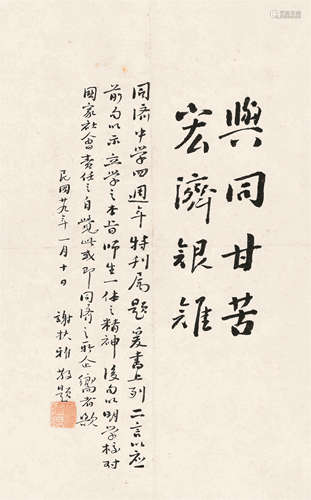 與同甘苦
宏濟艱難
同濟中学四週年特刊属題爰書上列二言以應
前句以示立学之本旨師生一体之精神後句以明学校對
國家社會責任之自覺此或即同濟之所企嚮者歟
民國廿九年一月十日
謝扶雅敬題